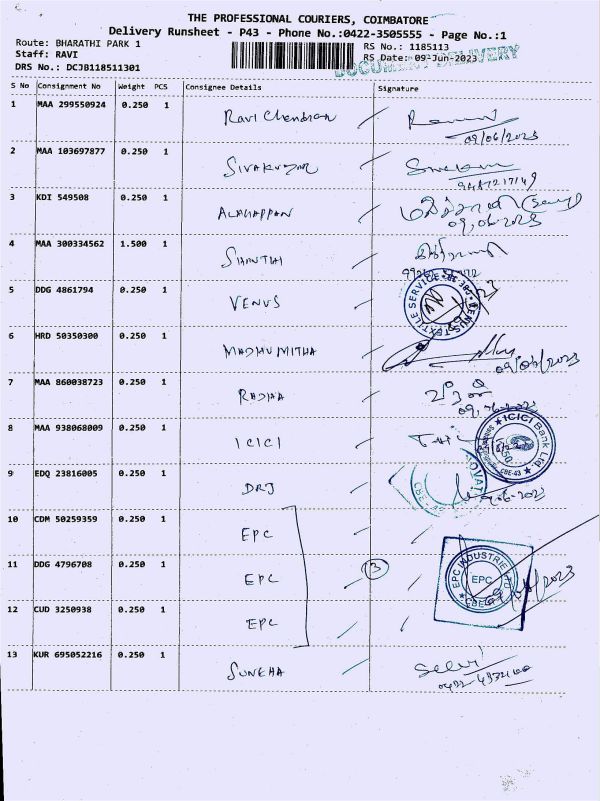 THE PROFESSIONAL COURIERS, COIMBATORE
Delivery Runsheet - P43 - Phone No.:0422-3505555 - Page No.:1
Route: BHARATHI PARK 1
RS No.: 1185113
Staff: RAVI
RS Date: 09-Jun-2023
DRS No.: DCJB118511301
DOCUMENT DELIVERY
S No Consignment No Weight PCS Consignee Details Signature
1 MAA 299550924 0.250 1 Ravi Chendran
09/06/2023
2 MAA 103697877 0.250 1 SIVAKUMAR
9487217149
3 KDI 549508 0.250 1 ALAGAPPAN
09,06-2023
4 MAA 300334562 1.500 1 SHANTHI
5 DDG 4861794 0.250 1 VENUS
VENUS TEXTILE SERVICE
6 HRD 50350300 0.250 1 MADHUMITHA
09/06/2023
7 MAA 860038723 0.250 1 RADHA
8 MAA 938068009 0.250 1 ICICI
ICICI Bank Ltd.
CBE-43
9 EDQ 23816005 0.250 1 DRJ
10 CDM 50259359 0.250 1 EPC
11 DDG 4796708 0.250 1 EPC 3
EPC INDUSTRIE LTD
EPC
12 CUD 3250938 0.250 1 EPC
13 KUR 695052216 0.250 1 SUNEHA
Selvi